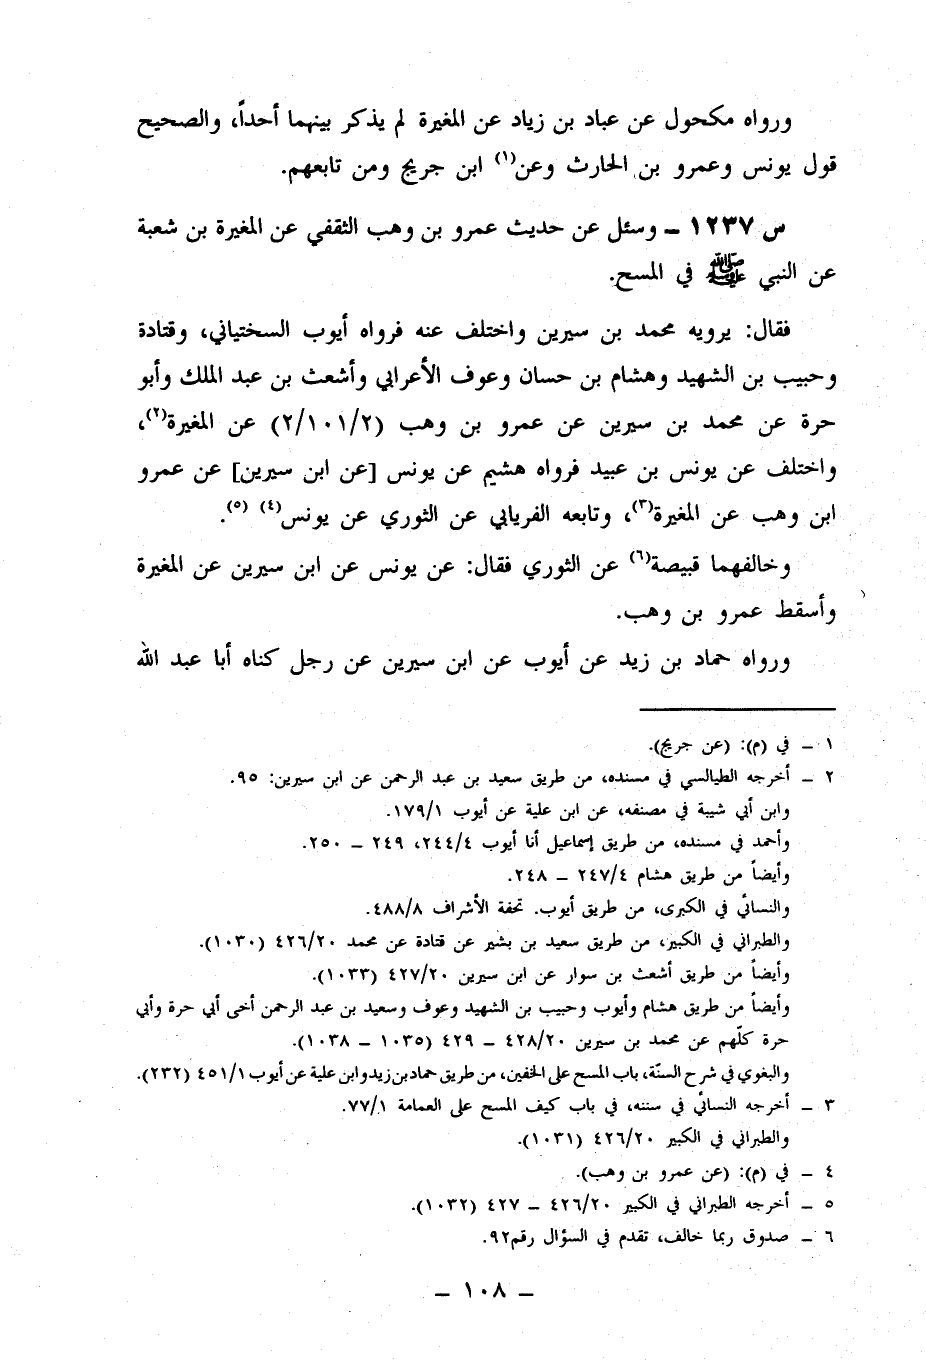 ورواه مكحول عن عباد بن زياد عن المغيرة لم يذكر بينهما أحداً، والصحيح
قول يونس وعمرو بن الحارث وعن(١) ابن جريج ومن تابعهم.
س ١٢٣٧ ـ وسئل عن حديث عمرو بن وهب الثقفي عن المغيرة بن شعبة
عن النبي ﷺ في المسح.
فقال: يرويه محمد بن سيرين واختلف عنه فرواه أيوب السختياني، وقتادة
وحبيب بن الشهيد وهشام بن حسان وعوف الأعرابي وأشعث بن عبد الملك وأبو
حرة عن محمد بن سيرين عن عمرو بن وهب (٢/١٠١/٢) عن المغيرة(٢)،
واختلف عن يونس بن عبيد فرواه هشيم عن يونس [عن ابن سيرين] عن عمرو
ابن وهب عن المغيرة(٣)، وتابعه الفريابي عن الثوري عن يونس(٤) (٥).
وخالفهما قبيصة(٦) عن الثوري فقال: عن يونس عن ابن سيرين عن المغيرة
وأسقط عمرو بن وهب.
ورواه حماد بن زيد عن أيوب عن ابن سيرين عن رجل كناه أبا عبد الله
١ ـ في (م): (عن جريج).
٢ ـ أخرجه الطيالسي في مسنده، من طريق سعيد بن عبد الرحمن عن ابن سيرين: ٩٥.
وابن أبي شيبة في مصنفه، عن ابن علية عن أيوب ١٧٩/١.
وأحمد في مسنده، من طريق إسماعيل أنا أيوب ٢٤٤/٤، ٢٤٩ ـ ٢٥٠.
وأيضاً من طريق هشام ٢٤٧/٤ ـ ٢٤٨.
والنسائي في الكبرى، من طريق أيوب. تحفة الأشراف ٤٨٨/٨.
والطبراني في الكبير، من طريق سعيد بن بشير عن قتادة عن محمد ٤٢٦/٢٠ (١٠٣٠).
وأيضاً من طريق أشعث بن سوار عن ابن سيرين ٤٢٧/٢٠ (١٠٣٣).
وأيضاً من طريق هشام وأيوب وحبيب بن الشهيد وعوف وسعيد بن عبد الرحمن أخى أبي حرة وأبي
حرة كلّهم عن محمد بن سيرين ٤٢٨/٢٠ ـ ٤٢٩ (١٠٣٥ ـ ١٠٣٨).
والبغوي في شرح السنّة، باب المسح على الخفين، من طريق حماد بن زيد وابن علية عن أيوب ٤٥١/١ (٢٣٢).
٣ ـ أخرجه النسائي في سننه، في باب كيف المسح على العمامة ٧٧/١.
والطبراني في الكبير ٤٢٦/٢٠ (١٠٣١).
٤ ـ في (م): (عن عمرو بن وهب).
٥ ـ أخرجه الطبراني في الكبير ٤٢٦/٢٠ ـ ٤٢٧ (١٠٣٢).
٦ ـ صدوق ربما خالف، تقدم في السؤال رقم٩٢.
ـ ١٠٨ ـ